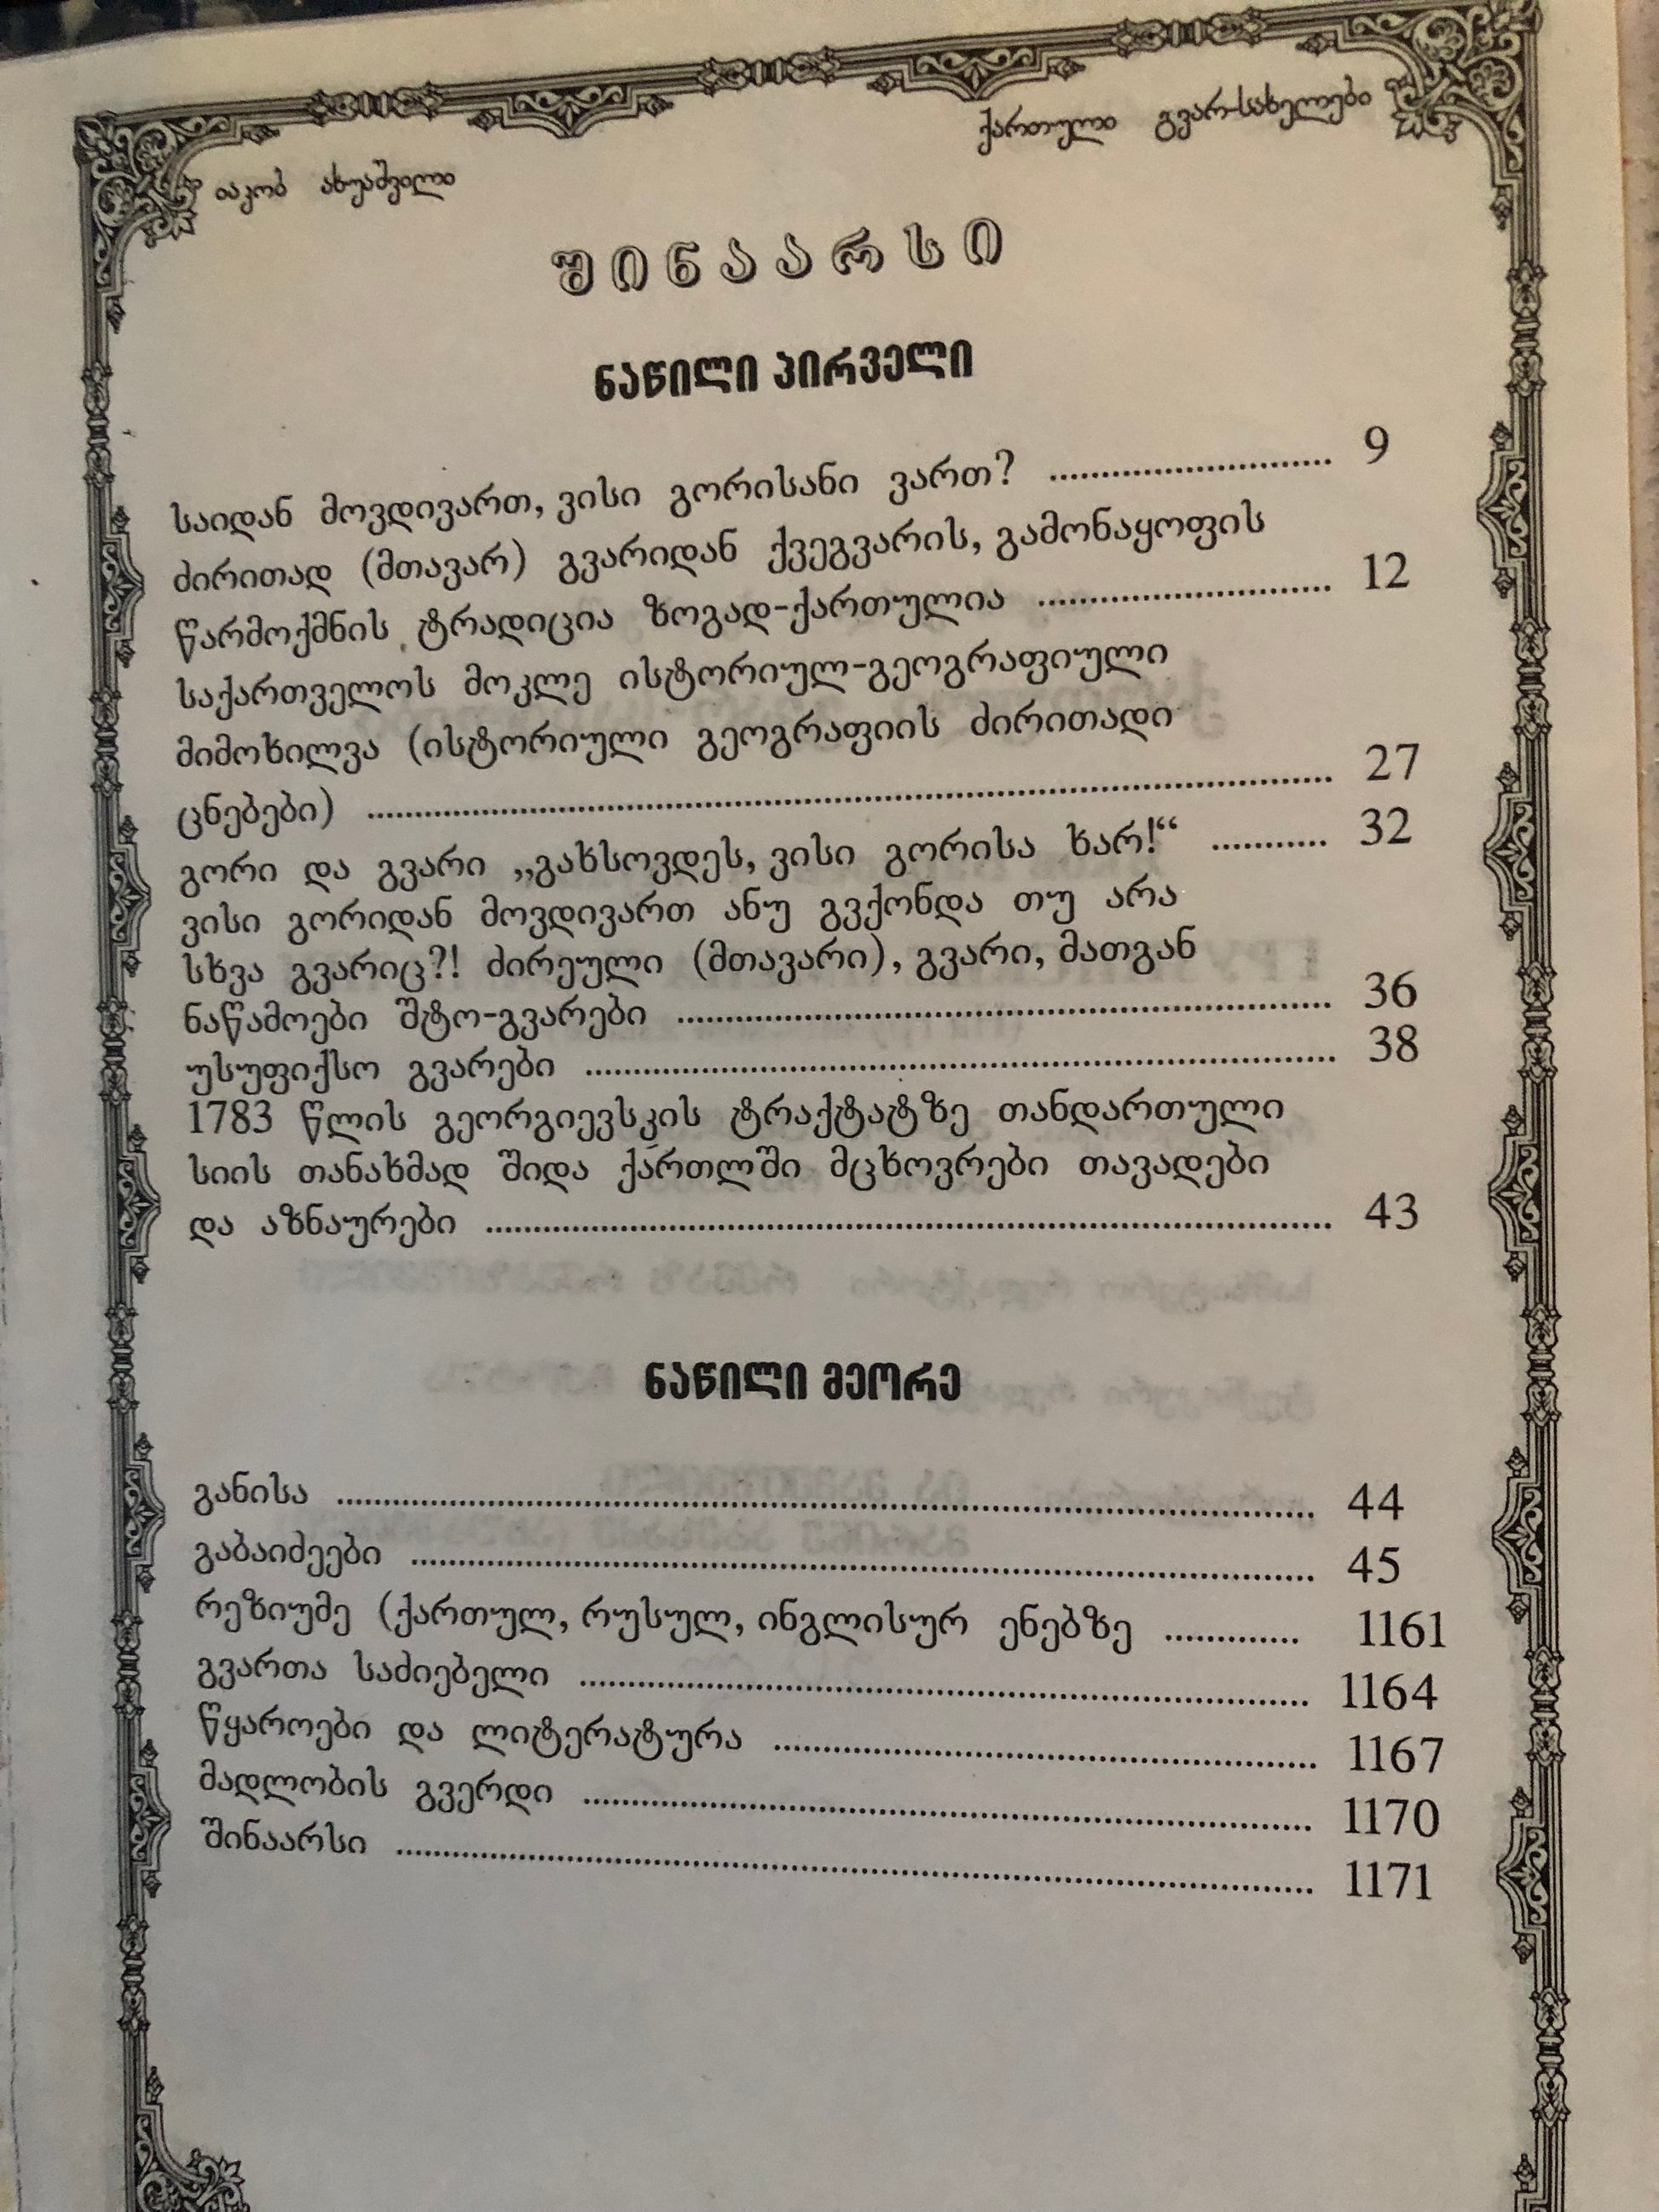 იაკობ ახუაშვილი
ქართული გვარ-სახელები
შინაარსი
ნაწილი პირველი
საიდან მოვდივართ, ვისი გორისანი ვართ? ........................... 9
ძირითად (მთავარ) გვარიდან ქვეგვარის, გამონაყოფის
წარმოქმნის ტრადიცია ზოგად-ქართულია ............................ 12
საქართველოს მოკლე ისტორიულ-გეოგრაფიული
მიმოხილვა (ისტორიული გეოგრაფიის ძირითადი
ცნებები) ................................................................ 27
გორი და გვარი „გახსოვდეს, ვისი გორისა ხარ!“ ........... 32
ვისი გორიდან მოვდივართ ანუ გვქონდა თუ არა
სხვა გვარიც?! ძირეული (მთავარი), გვარი, მათგან
ნაწამოები შტო-გვარები ................................................ 36
უსუფიქსო გვარები ................................................ 38
1783 წლის გეორგიევსკის ტრაქტატზე თანდართული
სიის თანახმად შიდა ქართლში მცხოვრები თავადები
და აზნაურები ................................................ 43
ნაწილი მეორე
განისა ................................................ 44
გაბაიძეები ................................................ 45
რეზიუმე (ქართულ, რუსულ, ინგლისურ ენებზე ............. 1161
გვართა საძიებელი ................................................ 1164
წყაროები და ლიტერატურა ................................................ 1167
მადლობის გვერდი ................................................ 1170
შინაარსი ................................................ 1171